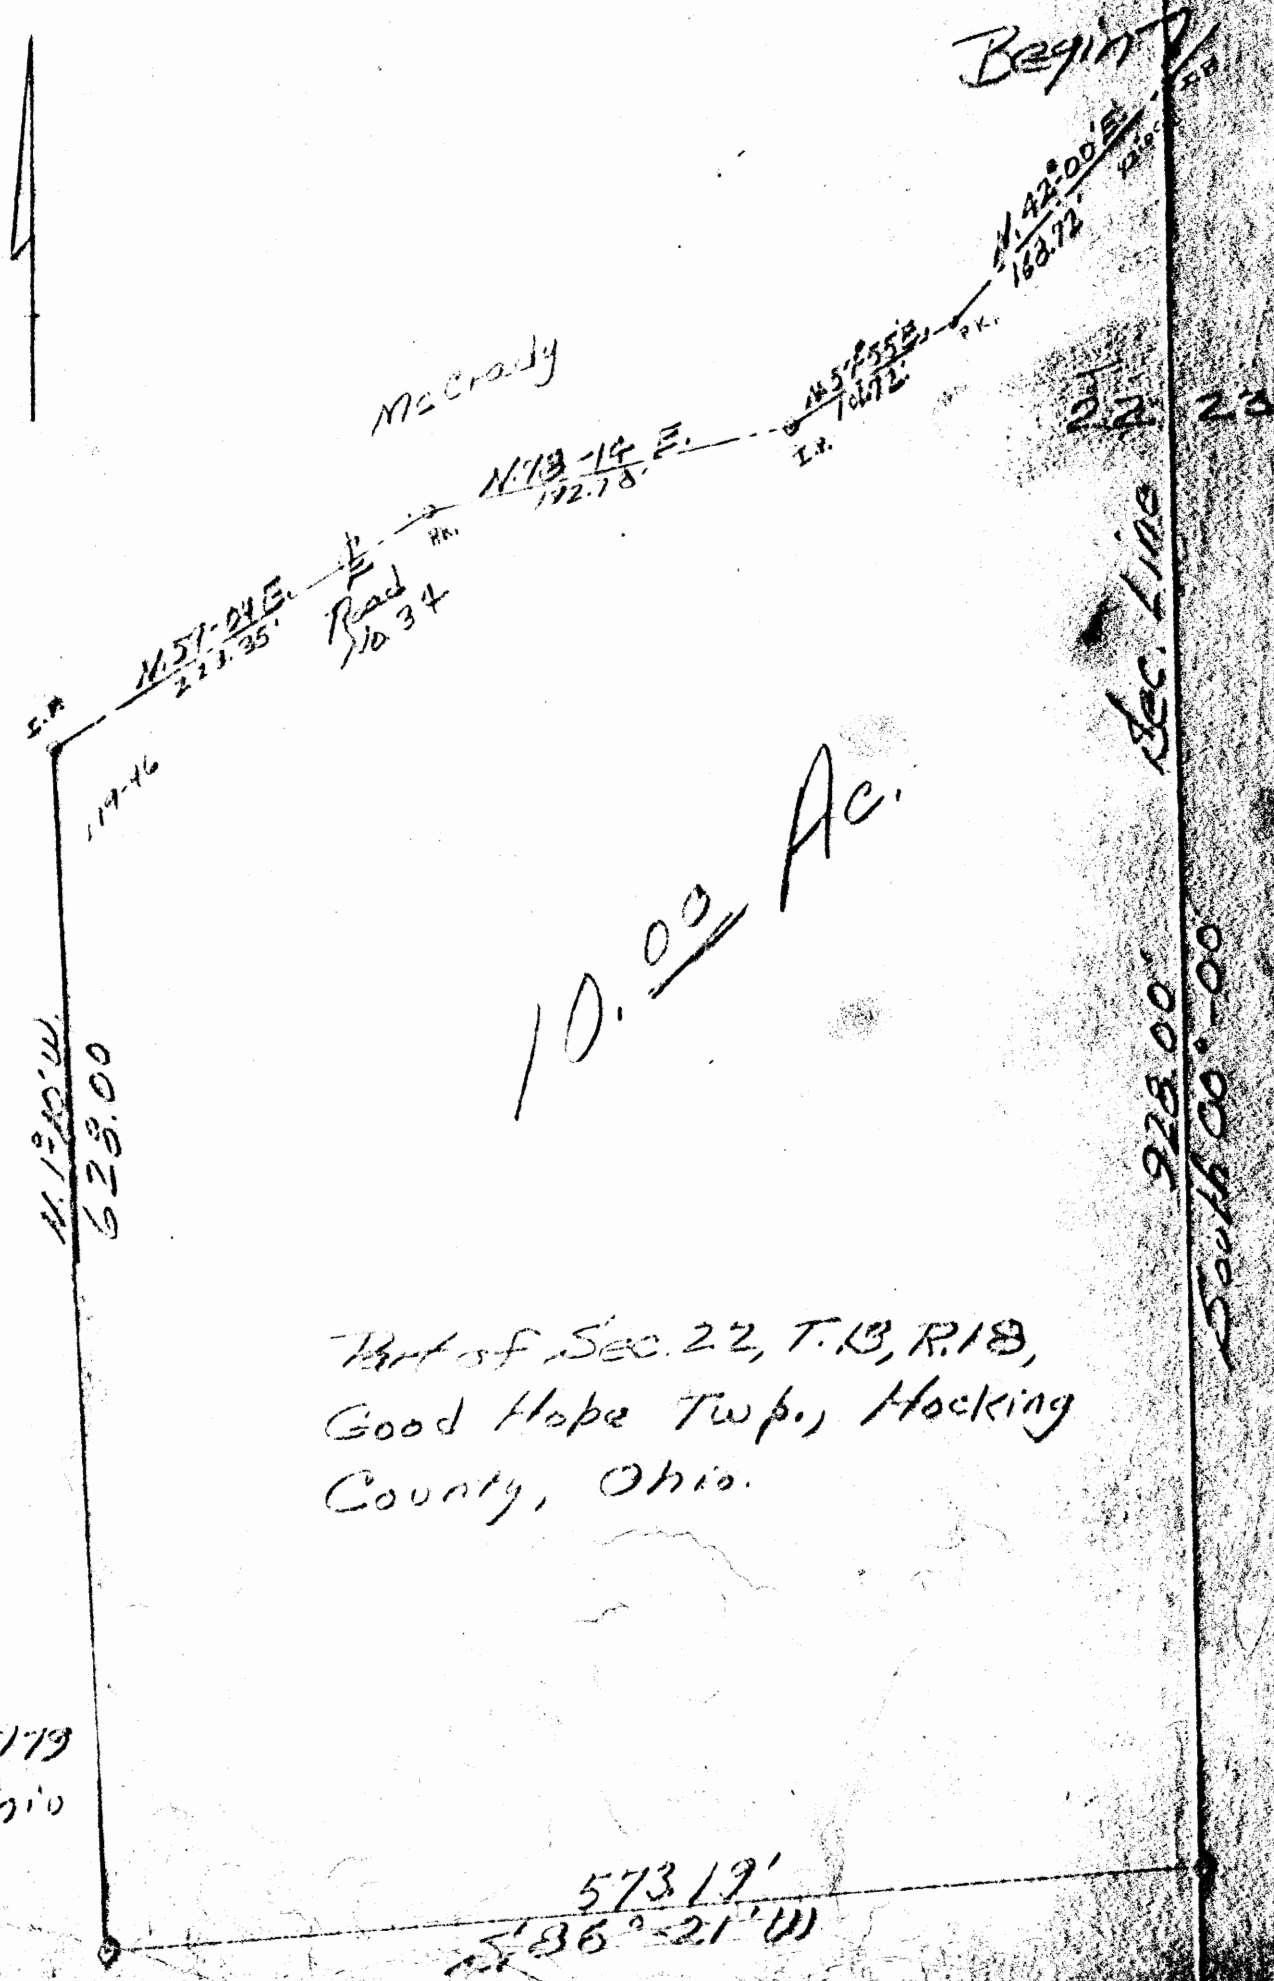 Begin
N. 42°-00' E.
162.72'
P.K.
N.57°55'E.
106.72'
I.P.
22 23
McCrady
N.73-14 E.
192.78'
P.K.
Road
N.57-04 E.
223.35'
I.P.
119-46
Sec. Line
10.00 Ac.
928.00'
South 00°-00'
N. 1°-10' W.
628.00
Part of Sec. 22, T.13, R.18,
Good Hope Twp., Hocking
County, Ohio.
573.19'
S 86°-21' W